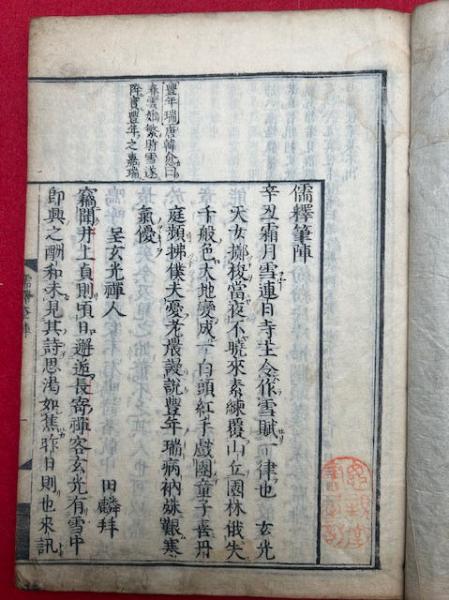 豐年瑞唐韓愈曰
春雲始繁時雪遂
降實豐年之嘉瑞
儒釋筆陣
辛丑霜月雪連日寺主令作雪賦一律也　玄光
天女擲梭當夜不曉來素練覆山丘園林俄失
千般色大地變成一白頭紅手戲團童子喜丹
庭頻拂僕夫憂老農謾說豐年瑞病衲殊艱寒
氣優
呈玄光禪人
田麟拜
竊聞井上貞則頃日邂逅長寄禪客玄光有雪中
即興之酬和未見其詩思渴如焦昨日則也來訊